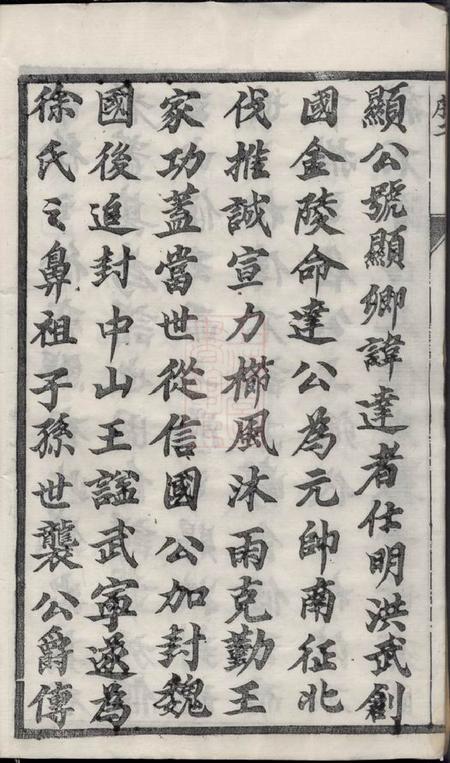 顯公號顯卿諱達者仕明洪武創
國金陵命達公為元帥南征北
伐推誠宣力櫛風沐雨克勤王
家功蓋當世從信國公加封魏
國後追封中山王諡武寧遂為
徐氏之鼻祖子孫世襲公爵傳